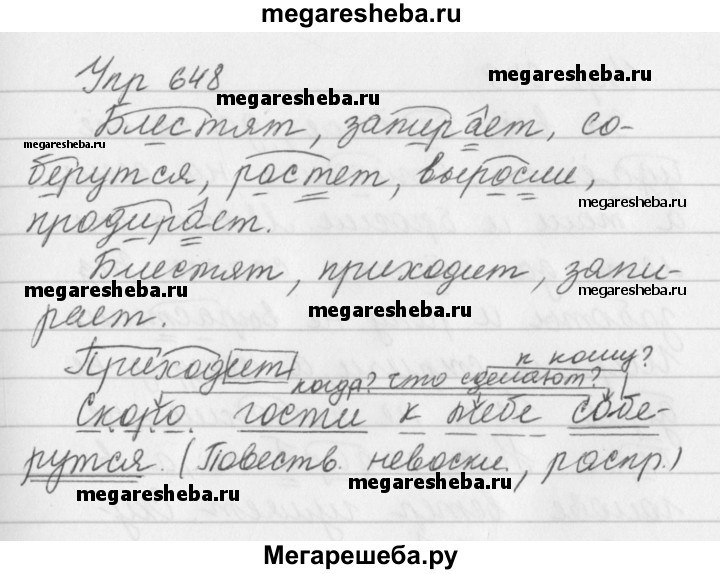 megaresheba.ru
Упр 648
megaresheba.ru
Блестят, запирает, со-
megaresheba.ru
берутся, растет, выросли,
megaresheba.ru
megaresheba.ru
продирает.
Блестят, приходит, запи-
megaresheba.ru
megaresheba.ru
megaresheba.ru
рает.
к кому?
Приходит
когда? что сделают?
Скоро гости к тебе собе-
рутся. (Повеств. невоскл., распр.)
megaresheba.ru
megaresheba.ru
Мегарешеба.ру